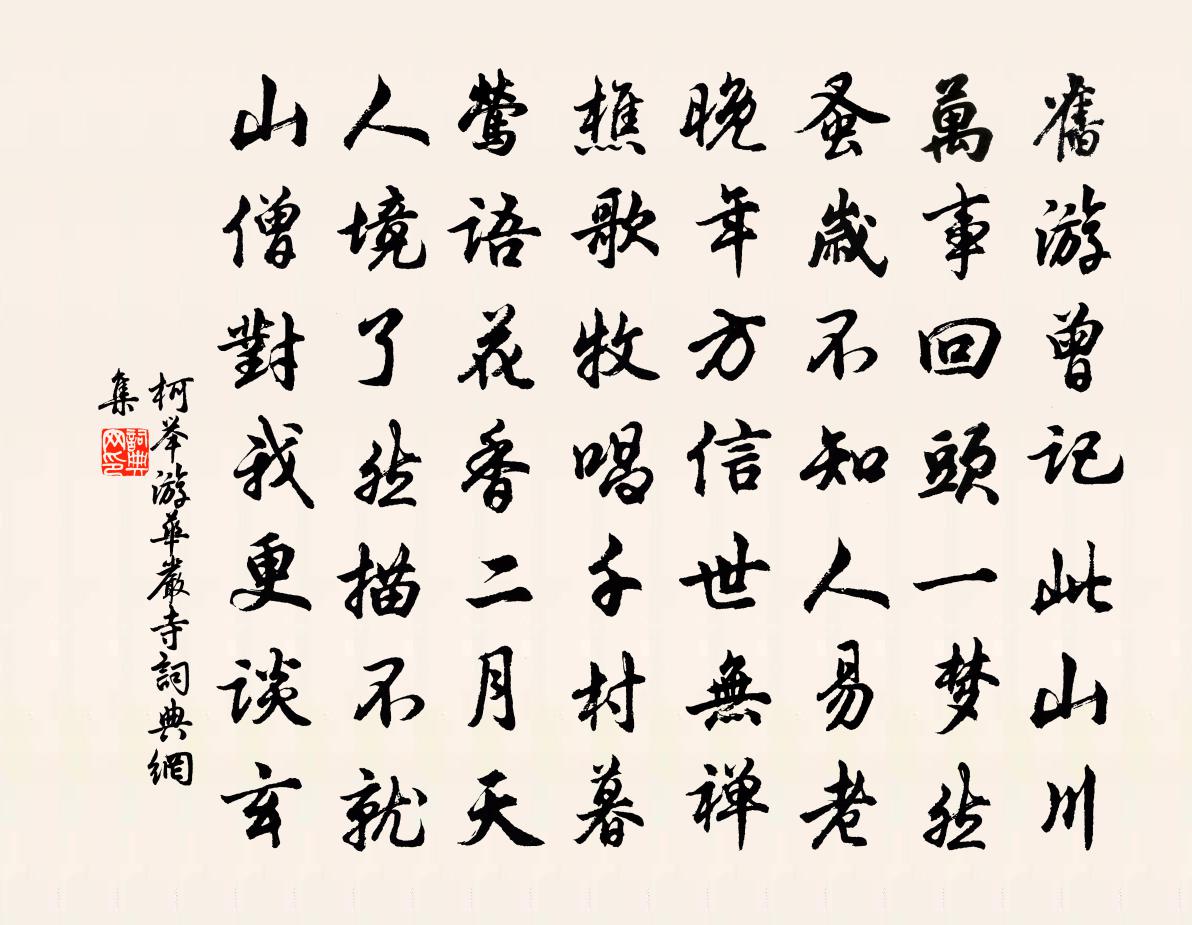 舊游曾記此山川
萬事回頭一梦然
蚤歲不知人易老
晚年方信世無禅
樵歌牧唱千村暮
鶯語花香二月天
人境了然描不就
山僧對我更談玄
柯举游華嚴寺詞典網
集
詞典
网印